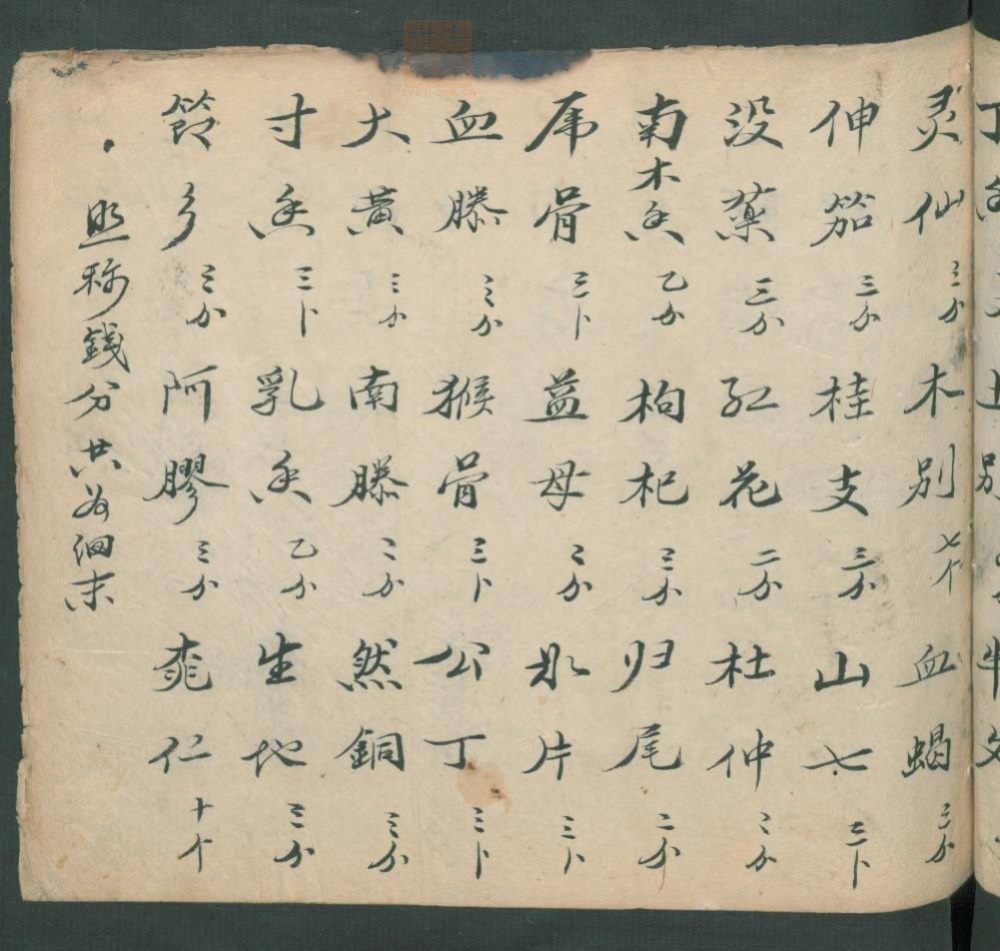 灵仙三分木别七个血蝎三分
伸笳三分桂支三分山七三卜
没薬三分红花二分杜仲二分
南木香乙分枸杞三分归尾二分
虎骨三卜益母二分氷片三卜
血滕三分猴骨三卜公丁三卜
大黄三分南滕二分然銅三分
寸香三卜乳香乙分生地三分
鈴多三分阿膠三分桃仁十个
照称錢分共为细末